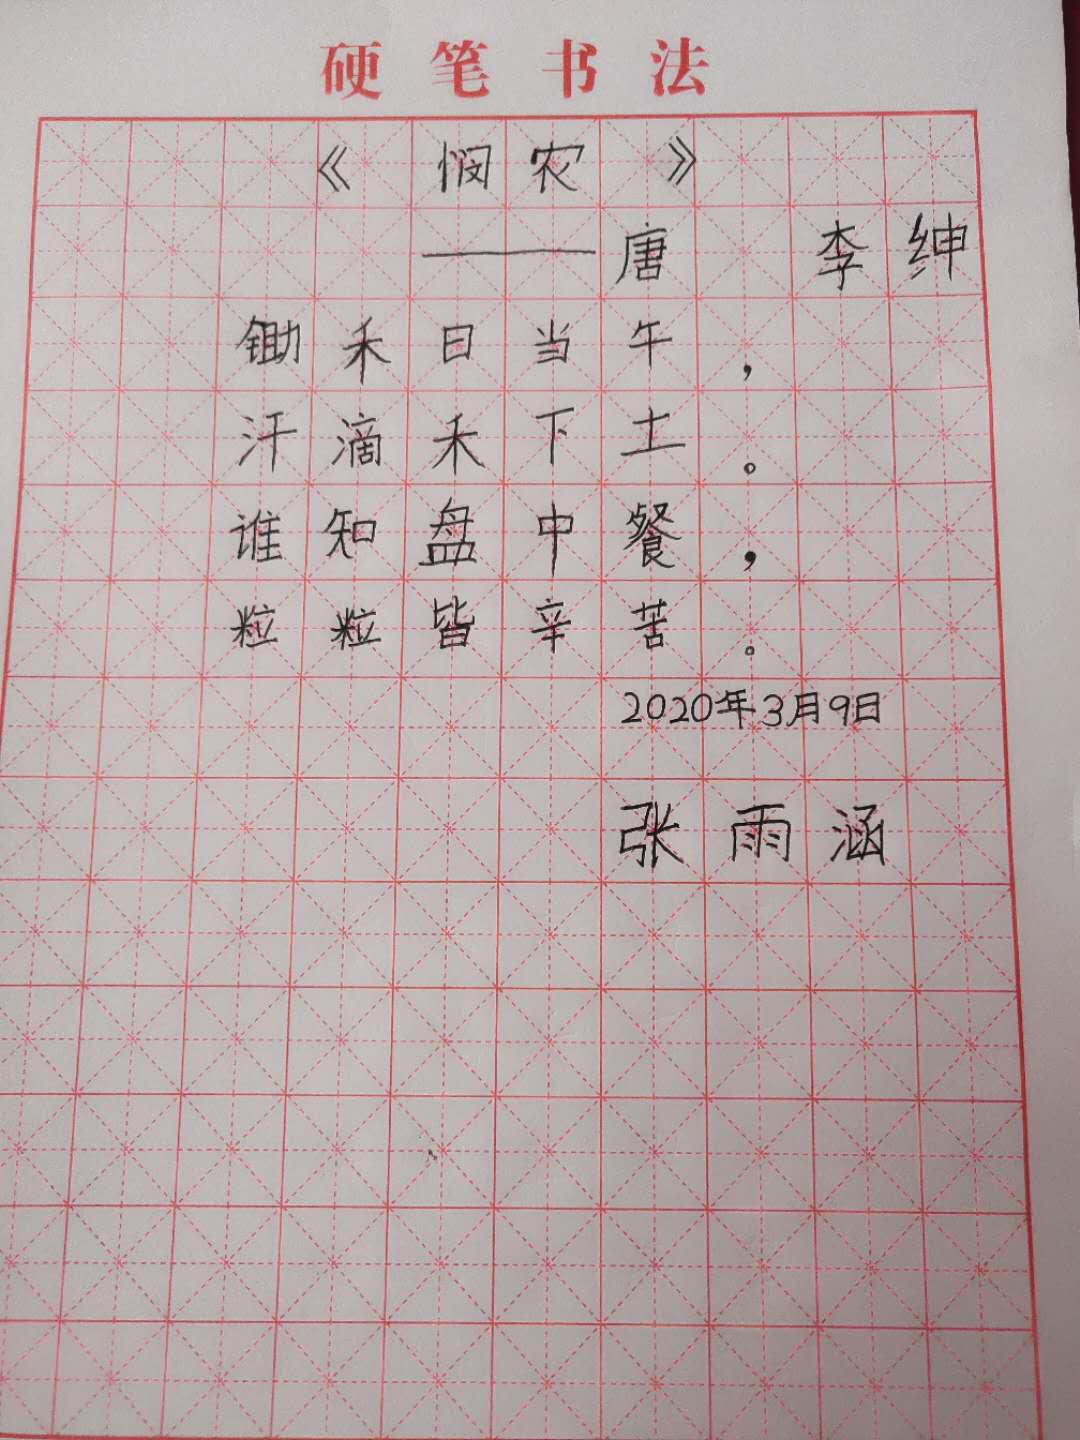 硬笔书法
《悯农》
——唐 李绅
锄禾日当午，
汗滴禾下土。
谁知盘中餐，
粒粒皆辛苦。
2020年3月9日
张雨涵